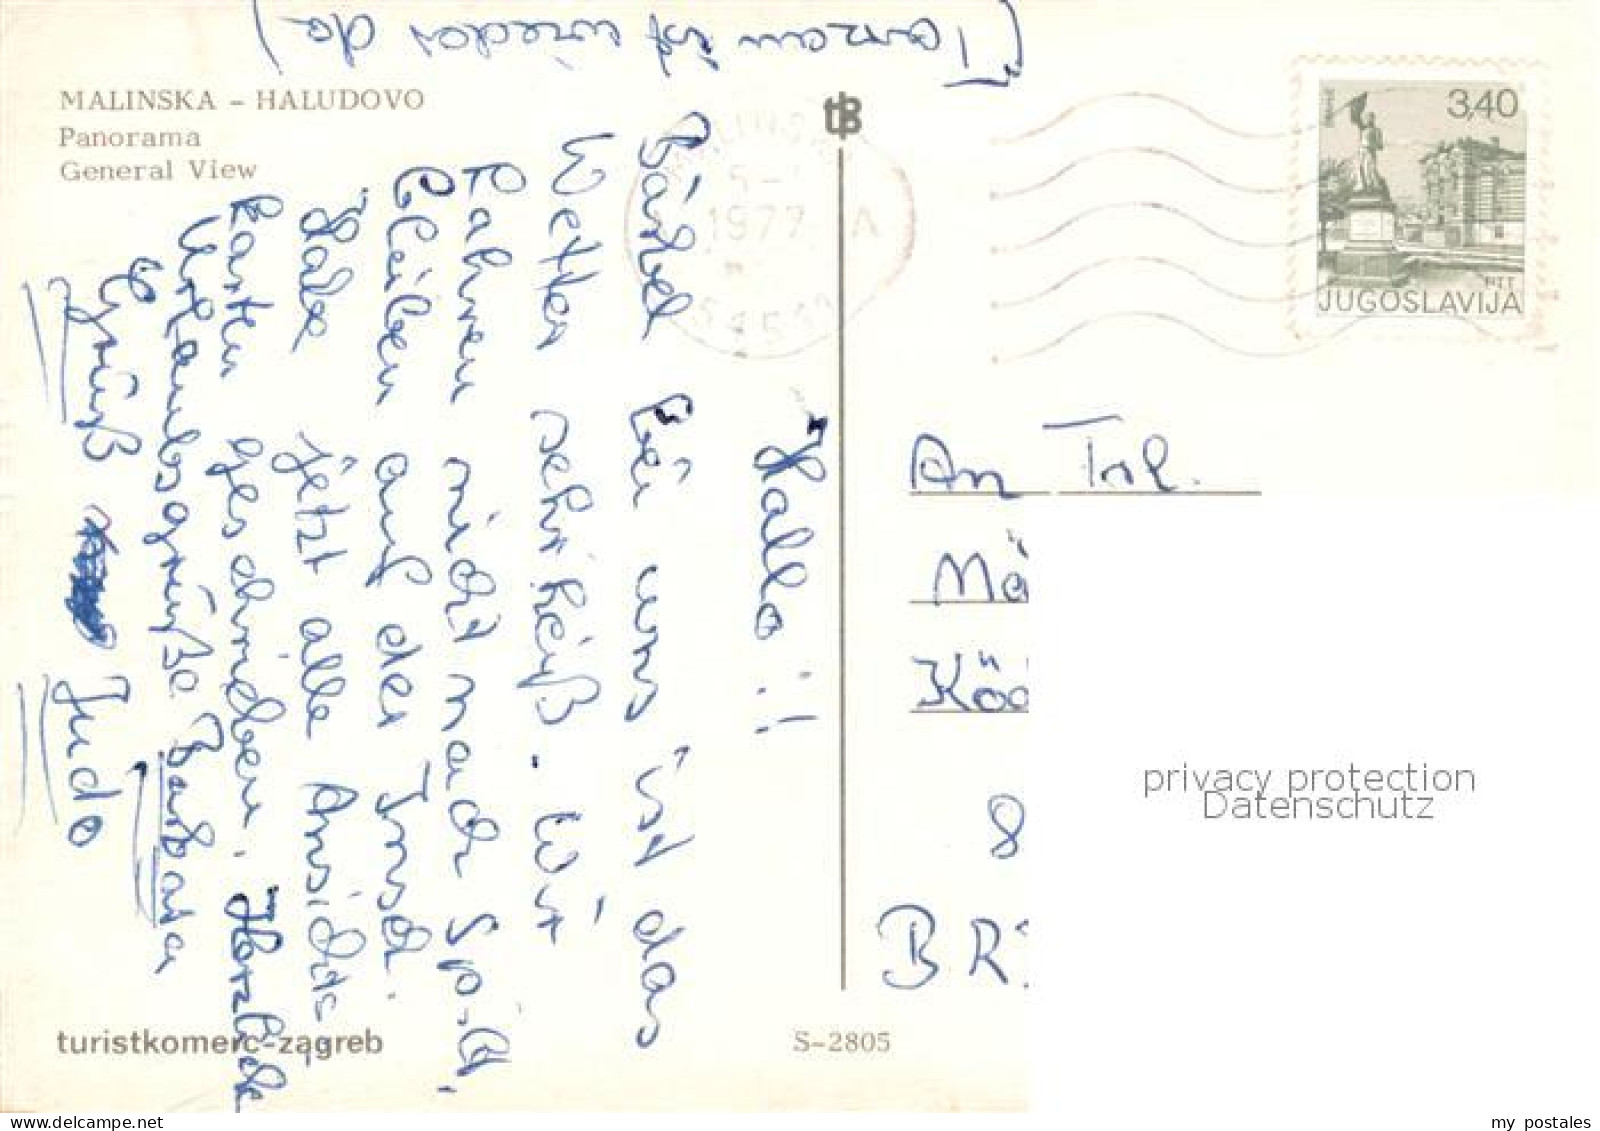 (Tarzan ist wieder da)
MALINSKA - HALUDOVO
Panorama
General View
tB
3,40
PTT
JUGOSLAVIJA
1977
A
Hallo!!
Bärbel bei uns ist das
Wetter sehr heiß. Wir
fahren nicht nach Split,
bleiben auf der Insel.
Habe jetzt alle Ansichts
karten geschrieben. Herzliche
Urlaubsgrüße Barbara
Gruß
Judo
An Frl.
Mä
Kö
8
BR
privacy protection
Datenschutz
turistkomerc-zagreb
S-2805
my postales
www.delcampe.net